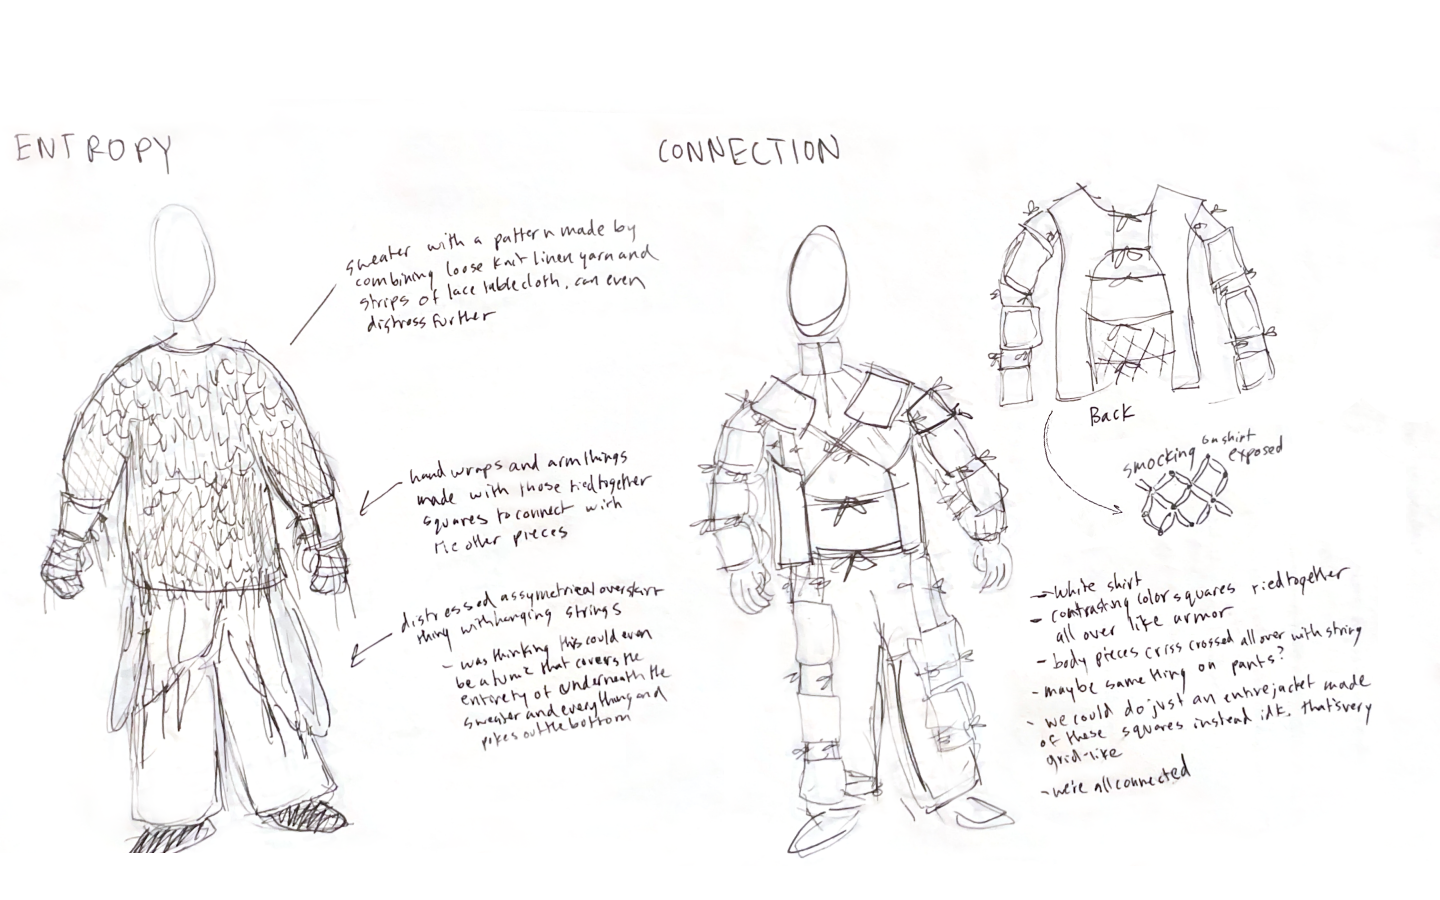 ENTROPY
sweater with a pattern made by
combining loose knit linen yarn and
strips of lace tablecloth. can even
distress further
hand wraps and arm things
made with those tied together
squares to connect with
the other pieces
distressed assymetrical overskirt
thing with hanging strings
- was thinking this could even
be a tunic that covers the
entirety of underneath the
sweater and everything and
pokes out the bottom
CONNECTION
Back
smocking on shirt
exposed
- white shirt
- contrasting color squares tied together
all over like armor
- body pieces criss crossed all over with string
- maybe same thing on pants?
- we could do just an entire jacket made
of these squares instead idk. that's very
grid-like
- we're all connected